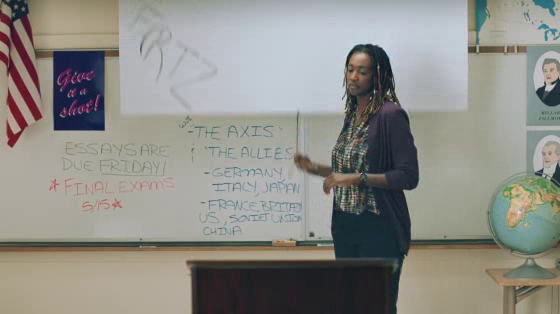 Give
it a
shot!
ESSAYS ARE
DUE FRIDAY!
*FINAL EXAMS
5/15*
-THE AXIS'
'THE ALLIES
-GERMANY,
ITALY, JAPAN
-FRANCE, BRITAIN
US, SOVIET UNION
CHINA
MILLARD
FILLMORE